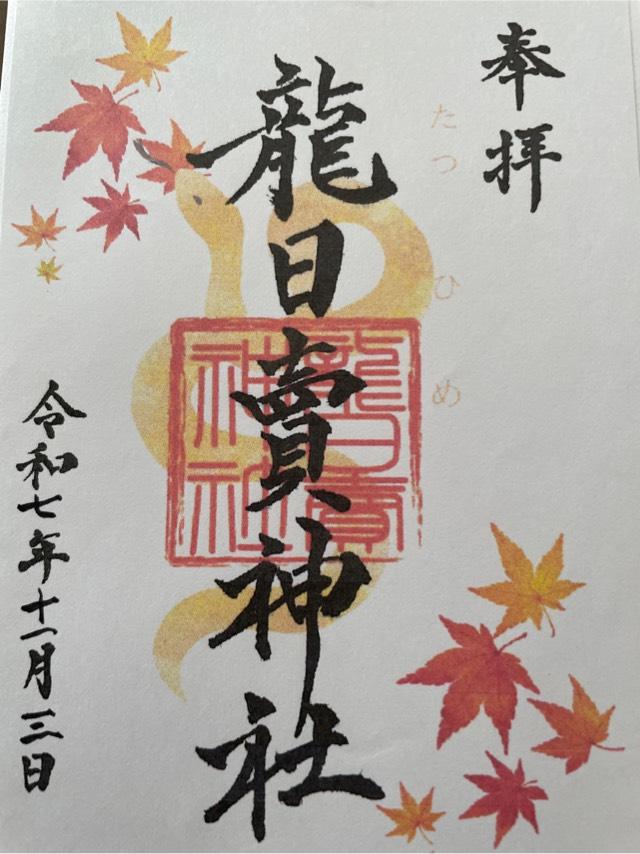 奉拝
たつひめ
龍日賣神社
龍日賣神社
令和七年十一月三日